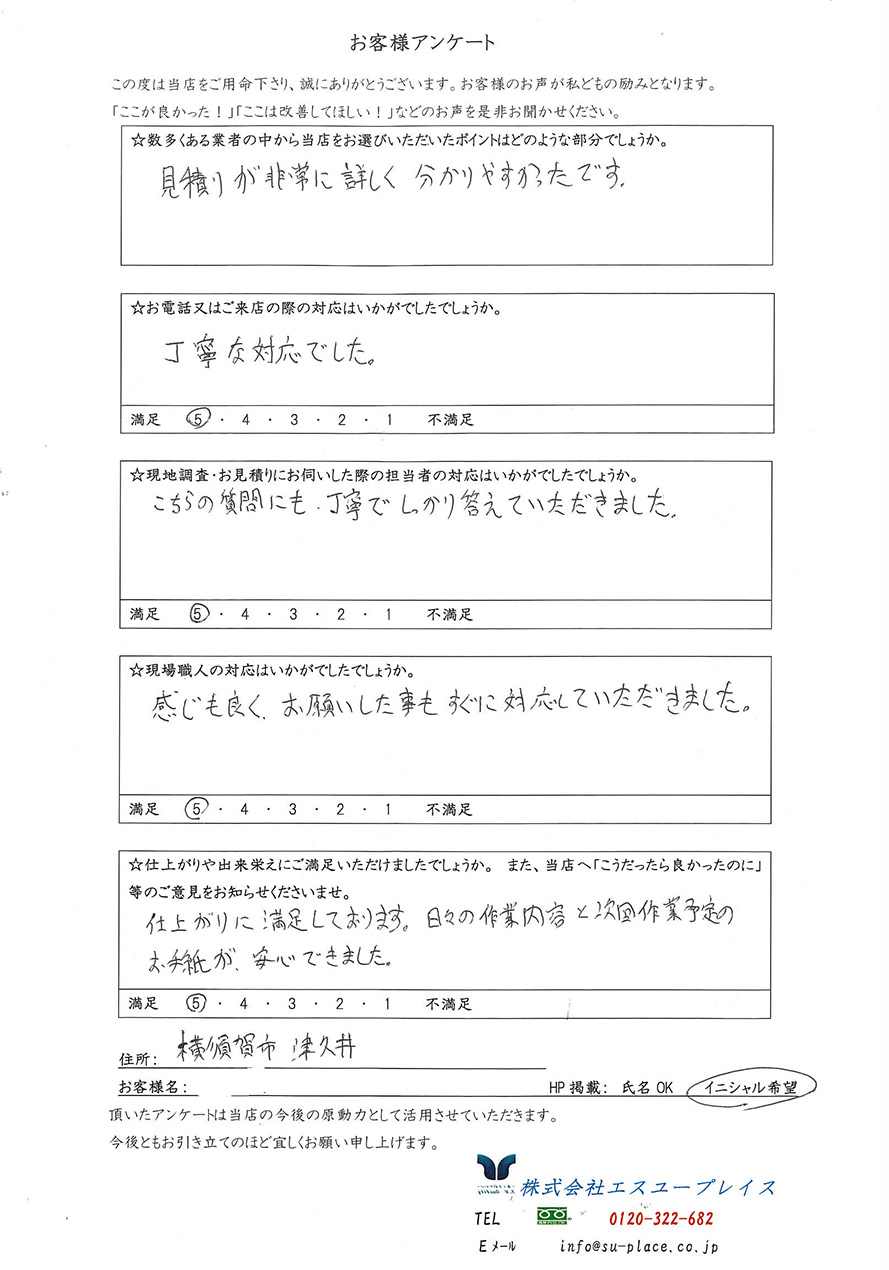 お客様アンケート
この度は当店をご用命下さり、誠にありがとうございます。お客様のお声が私どもの励みとなります。
「ここが良かった！」「ここは改善してほしい！」などのお声を是非お聞かせください。
☆数多くある業者の中から当店をお選びいただいたポイントはどのような部分でしょうか。
見積りが非常に詳しく 分かりやすかったです。
☆お電話又はご来店の際の対応はいかがでしたでしょうか。
丁寧な対応でした。
満足 5 ・ 4 ・ 3 ・ 2 ・ 1 不満足
☆現地調査・お見積りにお伺いした際の担当者の対応はいかがでしたでしょうか。
こちらの質問にも、丁寧で しっかり答えていただきました。
満足 5 ・ 4 ・ 3 ・ 2 ・ 1 不満足
☆現場職人の対応はいかがでしたでしょうか。
感じも良く、お願いした事も すぐに対応していただきました。
満足 5 ・ 4 ・ 3 ・ 2 ・ 1 不満足
☆仕上がりや出来栄えにご満足いただけましたでしょうか。 また、当店へ「こうだったら良かったのに」
等のご意見をお知らせくださいませ。
仕上がりに満足しております。日々の作業内容と次回作業予定の
お手紙が、安心できました。
満足 5 ・ 4 ・ 3 ・ 2 ・ 1 不満足
住所: 横須賀市 津久井
お客様名: HP掲載: 氏名OK イニシャル希望
頂いたアンケートは当店の今後の原動力として活用させていただきます。
今後ともお引き立てのほど宜しくお願い申し上げます。
株式会社エスユープレイス
TEL 0120-322-682
Eメール info@su-place.co.jp